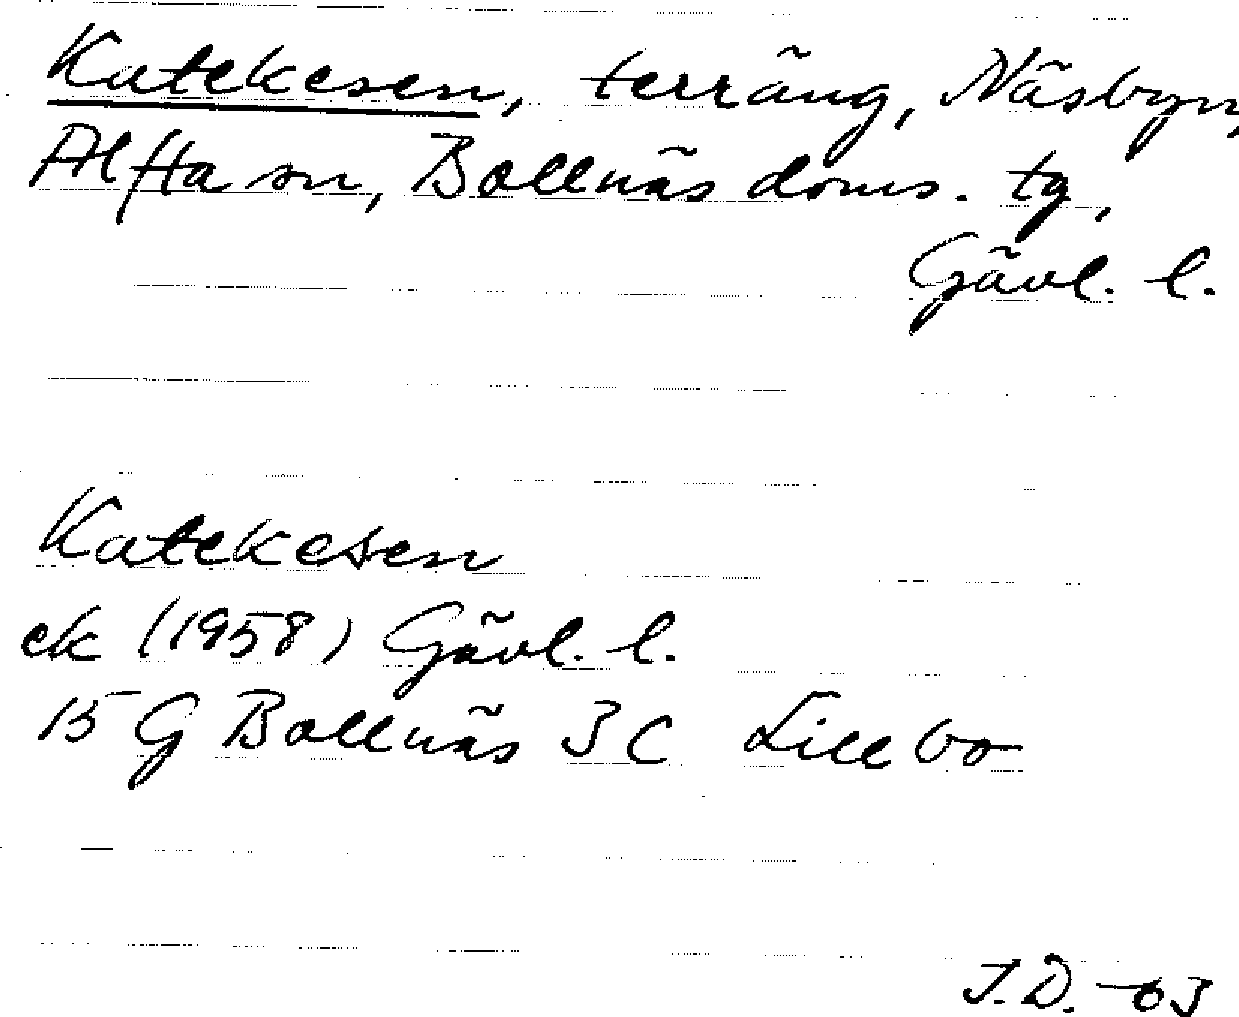 Katekesen, terräng, Näsbyn,
Alfta sn, Bollnäs doms. tg,
Gävl. l.
Katekesen
ek (1958) Gävl. l.
15 G Bollnäs 3 C Lillbo
J.D. -03